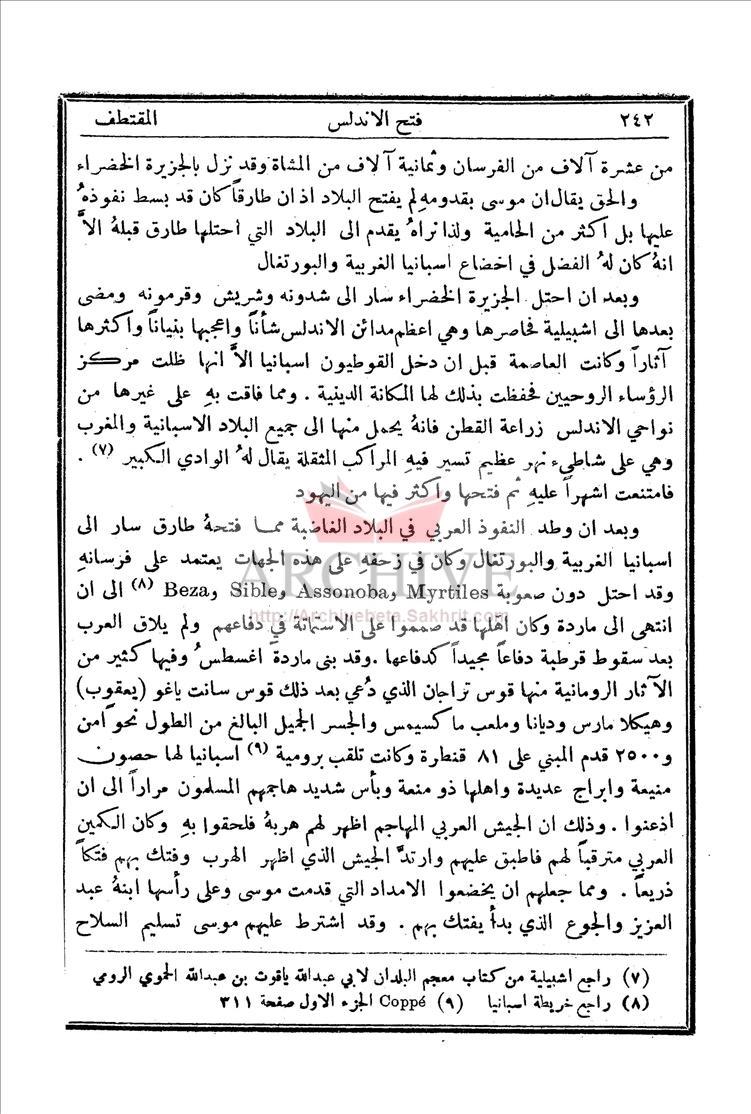 ٢٤٢ فتح الاندلس المقتطف
من عشرة آلاف من الفرسان وثمانية آلاف من المشاة وقد نزل بالجزيرة الخضراء
والحق يقال ان موسى بقدومهِ لم يفتح البلاد اذ ان طارقاً كان قد بسط نفوذهُ
عليها بل اكثر من الحامية ولذا نراهُ يقدم الى البلاد التي احتلها طارق قبلهُ الاَّ
انهُ كان لهُ الفضل في اخضاع اسبانيا الغربية والبورتغال
وبعد ان احتل الجزيرة الخضراء سار الى شدونه وشريش وقرمونه ومضى
بعدها الى اشبيلية فحاصرها وهي اعظم مدائن الاندلس شأناً واعجبها بنياناً واكثرها
آثاراً وكانت العاصمة قبل ان دخل القوطيون اسبانيا الاَّ انها ظلت مركز
الرؤساء الروحيين فحفظت بذلك لها المكانة الدينية . ومما فاقت بهِ على غيرها من
نواحي الاندلس زراعة القطن فانهُ يحمل منها الى جميع البلاد الاسبانية والمغرب
وهي على شاطيء نهر عظيم تسير فيهِ المراكب المثقلة يقال لهُ الوادي الكبير (٧) .
فامتنعت اشهراً عليهِ ثم فتحها واكثر فيها من اليهود
وبعد ان وطد النفوذ العربي في البلاد الغاضبة مما فتحهُ طارق سار الى
اسبانيا الغربية والبورتغال وكان في زحفهِ على هذه الجهات يعتمد على فرسانهِ
وقد احتل دون صعوبة Myrtiles و Assonoba و Sible و Beza (٨) الى ان
انتهى الى ماردة وكان اهلها قد صمموا على الاستماتة في دفاعهم ولم يلاق العرب
بعد سقوط قرطبة دفاعاً مجيداً كدفاعها . وقد بنى ماردة اغسطسُ وفيها كثير من
الآثار الرومانية منها قوس تراجان الذي دُعي بعد ذلك قوس سانت ياغو (يعقوب)
وهيكلا مارس وديانا وملعب ماكسيمس والجسر الجميل البالغ من الطول نحواً من
و٢٥٠٠ قدم المبني على ٨١ قنطرة وكانت تلقب برومية (٩) اسبانيا لها حصون
منيعة وابراج عديدة واهلها ذو منعة وبأس شديد هاجمهم المسلمون مراراً الى ان
اذعنوا . وذلك ان الجيش العربي المهاجم اظهر لهم هربهُ فلحقوا بهِ وكان الكمين
العربي مترقباً لهم فاطبق عليهم وارتدَّ الجيش الذي اظهر الهرب وفتك بهم فتكاً
ذريعاً . ومما جعلهم ان يخضعوا الامداد التي قدمت موسى وعلى رأسها ابنهُ عبد
العزيز والجوع الذي بدأ يفتك بهم . وقد اشترط عليهم موسى تسليم السلاح
(٧) راجع اشبيلية من كتاب معجم البلدان لابي عبدالله ياقوت بن عبدالله الحموي الرومي
(٨) راجع خريطة اسبانيا (٩) Coppé الجزء الاول صفحة ٣١١
ARCHIVE
http://Archivebeta.Sakhrit.com